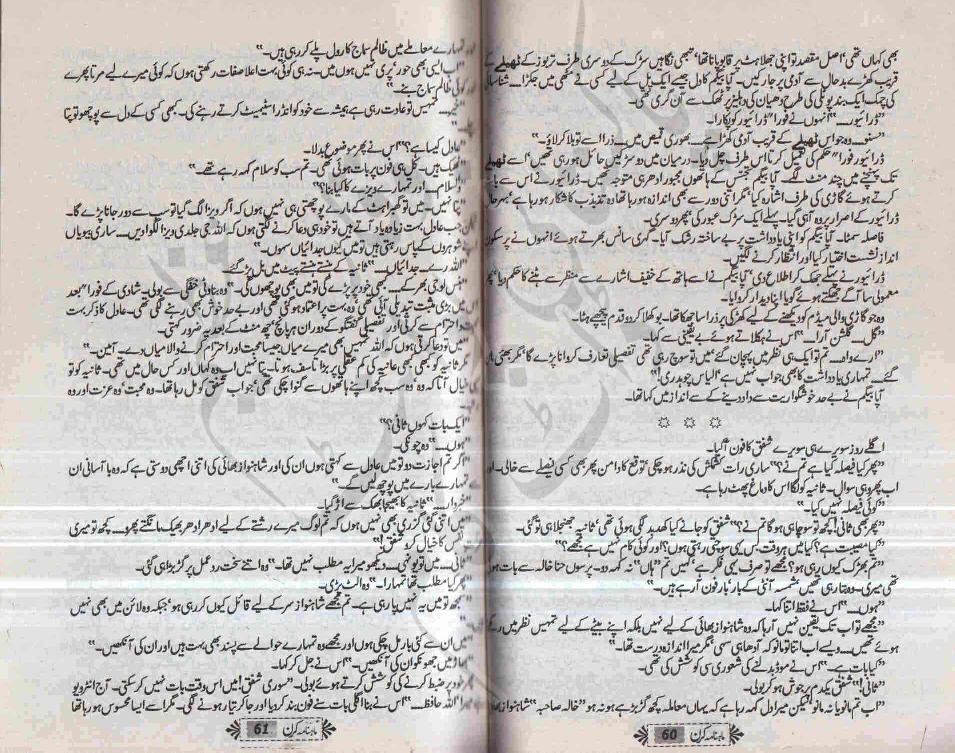 بھی کہاں تھی‘ اصل مقصد تو اپنی جھلاہٹ پر قابو پانا تھا‘ تبھی نگاہیں سڑک کے دوسری طرف تربوز کے ٹھیلے کے
قریب کھڑے بدحال سے آدمی پر جا رکیں۔ آپا بیگم کا دل جیسے ایک پل کے لیے کسی نے مٹھی میں جکڑا..... شناسائی
کی چمک ایک بند پوٹلی کی طرح دھیان کی دہلیز پر ٹھک سے آن گری تھی۔
”ڈرائیور.....“ انہوں نے فورا” ڈرائیور کو پکارا۔
”سنو..... وہ جو اس ٹھیلے کے قریب آدمی کھڑا ہے..... بھوری قمیص میں..... ذرا اسے تو بلا کر لاؤ۔“
ڈرائیور فورا” حکم کی تعمیل کرتا اس طرف چل دیا۔ درمیان میں دو سڑکیں حائل ہو رہی تھیں‘ اسے ٹھیلے
تک پہنچنے میں چند منٹ لگے۔ آپا بیگم تجسس کے ہاتھوں مجبور ادھر ہی متوجہ تھیں۔ ڈرائیور نے اس سے بات
کرتے ہوئے گاڑی کی طرف اشارہ کیا‘ مگر اتنی دور سے بھی اندازہ ہو رہا تھا وہ تذبذب کا شکار ہو رہا ہے‘ بہرحال
ڈرائیور کے اصرار پر وہ آ ہی گیا۔ پہلے ایک سڑک عبور کی پھر دوسری۔
فاصلہ سمٹا۔ آپا بیگم کو اپنی یادداشت پر بے ساختہ رشک آیا۔ گہری سانس بھرتے ہوئے انہوں نے پرسکون
انداز نشست اختیار کیا اور انتظار کرنے لگیں۔
ڈرائیور نے پہلے جھک کر اطلاع دی‘ آپا بیگم نے اسے ہاتھ کے خفیف اشارے سے منظر سے ہٹنے کا حکم دیا‘ پھر
معمولی سا آگے جھکتے ہوئے گویا اپنا دیدار کروایا۔
وہ جو گاڑی والی میڈم کو دیکھنے کے لیے کھڑکی پر ذرا سا جھکا تھا۔ بوکھلا کر دو قدم پیچھے ہٹا۔
”گل..... گلشن آرا.....“ اس نے ہکلاتے ہوئے بے یقینی سے کہا۔
”ارے واہ..... تم تو ایک ہی نظر میں پہچان گئے‘ میں تو سوچ رہی تھی تفصیلی تعارف کروانا پڑے گا‘ مگر بھئی مان
گئے..... تمہاری یادداشت کا بھی جواب نہیں ہے‘ الیاس چوہدری!“
آپا بیگم نے بے حد خوشگواریت سے داد دینے کے سے انداز میں کہا تھا۔
☼ ☼ ☼
اگلے روز سویرے ہی سویرے شفق کا فون آ گیا۔
”پھر کیا فیصلہ کیا ہے تم نے؟“ ساری رات کشمکش کی نذر ہو چکی‘ توقع کا دامن پھر بھی کسی فیصلے سے خالی۔ اور
اب پھر وہی سوال۔ ثانیہ کو لگا اس کا دماغ پھٹ رہا ہے۔
”کوئی فیصلہ نہیں کیا۔“
”پھر بھی ثانی! کچھ تو سوچا ہی ہو گا تم نے؟“ شفق کو جانے کیا کھدبد لگی ہوئی تھی‘ ثانیہ جھنجلا ہی تو گئی۔
”کیا مصیبت ہے؟ کیا میں ہر وقت بس یہی سوچتی رہتی ہوں؟ اور کوئی کام نہیں ہے مجھے؟“
”تم بھڑک کیوں رہی ہو؟ مجھے تو صرف یہی فکر ہے‘ کہیں تم ”ہاں“ نہ کہہ دو۔ پرسوں حنا خالہ سے بات ہوئی
تھی میری۔ وہ بتا رہی تھیں‘ شمسہ آنٹی کے بار‘ بار فون آ رہے ہیں۔“
”ہوں.....“ اس نے فقط اتنا کہا۔
”مجھے تو اب تک یقین نہیں آ رہا کہ وہ شاہنواز بھائی کے لیے نہیں بلکہ اپنے بیٹے کے لیے تمہیں نظر میں رکھے
ہوئے تھیں..... ویسے اب اتنا تو مانو کہ آدھا ہی سہی‘ مگر میرا اندازہ درست تھا۔“
”کیا بات ہے.....“ اس نے موڈ بدلنے کی شعوری سی کوشش کی تھی۔
”ثانی!“ شفق یکدم پرجوش ہو کر بولی۔
”اب تم مانو یا نہ مانو‘ لیکن میرا دل کہہ رہا ہے کہ یہاں معاملہ کچھ گڑبڑ ہے‘ ہو نہ ہو ”خالہ صاحبہ“ شاہنواز بھائی
ماہنامہ کرن 60
تمہارے معاملے میں ظالم سماج کا رول پلے کر رہی ہیں۔“
”اب ایسی بھی حور‘ پری نہیں ہوں میں۔ نہ ہی کوئی بہت اعلا صفات رکھتی ہوں کہ کوئی میرے لیے مرتا پھرے
کوئی ظالم سماج بنے۔“
”خیر..... تمہیں تو عادت رہی ہے ہمیشہ سے خود کو انڈر اسٹیمیٹ کرتے رہنے کی۔ کبھی کسی کے دل سے پوچھو تو پتا
چلے۔“
”عادل کیسا ہے؟“ اس نے پھر موضوع بدلا۔
”ٹھیک ہیں۔ کل ہی فون پر بات ہوئی تھی۔ تم سب کو سلام کہہ رہے تھے۔“
”وسلام..... اور تمہارے ویزے کا کیا بنا؟“
”پتا نہیں..... میں تو گھبراہٹ کے مارے پوچھتی ہی نہیں ہوں کہ اگر ویزا لگ گیا تو سب سے دور جانا پڑے گا۔
جب عادل بہت زیادہ یاد آتے ہیں تو خود ہی دعا کرنے لگتی ہوں کہ اللہ جی جلدی ویزا لگوا دیں..... ساری بیویاں
اپنے شوہروں کے پاس رہتی ہیں تو میں کیوں جدائیاں سہوں۔“
”اللہ رے..... جدائیاں.....“ ثانیہ کے ہنستے ہنستے پیٹ میں بل پڑ گئے۔
”ہنس لو جی بھر کے..... کبھی خود پر پڑے گی تو میں بھی پوچھوں گی۔“ وہ بناوٹی خفگی سے بولی۔ شادی کے فورا” بعد
اس میں بڑی مثبت تبدیلی آئی تھی‘ وہ بہت پراعتماد ہو گئی تھی اور بے حد خوش بھی رہنے لگی تھی۔ عادل کا ذکر بہت
احترام سے کرتی اور تفصیلی گفتگو کے دوران ہر پانچ‘ چھ منٹ کے بعد یہ ضرور کہتی۔
”میں تو دعا کرتی ہوں کہ اللہ تمہیں بھی میرے میاں جیسا محبت اور احترام کرنے والا میاں دے۔ آمین۔“
مگر ثانیہ کو کبھی کبھی عانیہ کی کم عقلی پر بڑا تاسف ہوتا۔ پتا نہیں اب وہ کہاں اور کس حال میں تھی۔ ثانیہ کو تو
یہی خیال آتا کہ وہ وہ سب کچھ اپنے ہاتھوں سے گنوا چکی تھی‘ جو اب شفق کو مل رہا تھا۔ وہ محبت‘ وہ عزت اور وہ
”ایک بات کہوں ثانی؟“
”ہوں.....“ وہ چونکی۔
”اگر تم اجازت دو تو میں عادل سے کہتی ہوں ان کی اور شاہنواز بھائی کی اتنی اچھی دوستی ہے کہ وہ با آسانی ان
سے تمہارے بارے میں پوچھ لیں گے۔“
”خبردار.....“ ثانیہ کا بھیجا بھک سے اڑ گیا۔
”میں اتنی گئی گزری بھی نہیں ہوں کہ تم لوگ میرے رشتے کے لیے ادھر ادھر بھیک مانگتے پھرو..... کچھ تو میری
عزت نفس کا خیال کرو شفق!“
”ثانی..... میں تو یونہی..... دیکھو میرا یہ مطلب نہیں تھا۔“ وہ اتنے سخت رد عمل پر گڑبڑا ہی گئی۔
”پھر کیا مطلب تھا تمہارا۔“ وہ الٹ پڑی۔
”مجھے تو میں یہ نہیں پا رہی ہے۔ تم مجھے شاہنواز سر کے لیے قائل کیوں کر رہی ہو‘ جبکہ وہ لائن میں بھی نہیں
”میں ان سے کئی بار مل چکی ہوں اور مجھے وہ تمہارے حوالے سے پسند بھی بہت ہیں اور ان کی آنکھیں۔“
”بھاڑ میں جھونکوان کی آنکھیں۔“ اس نے جل کر کہا۔
پھر خود پر ضبط کرنے کی کوشش کرتے ہوئے بولی۔ ”سوری شفق! میں اس وقت بات نہیں کر سکتی۔ آج انٹرویو
ہے میرا‘ اللہ حافظ.....“ اس نے بنا اگلی بات سنے فون بند کر دیا اور جا کر تیار ہونے لگی۔ مگر اسے ایسا محسوس ہو رہا تھا
ماہنامہ کرن 61